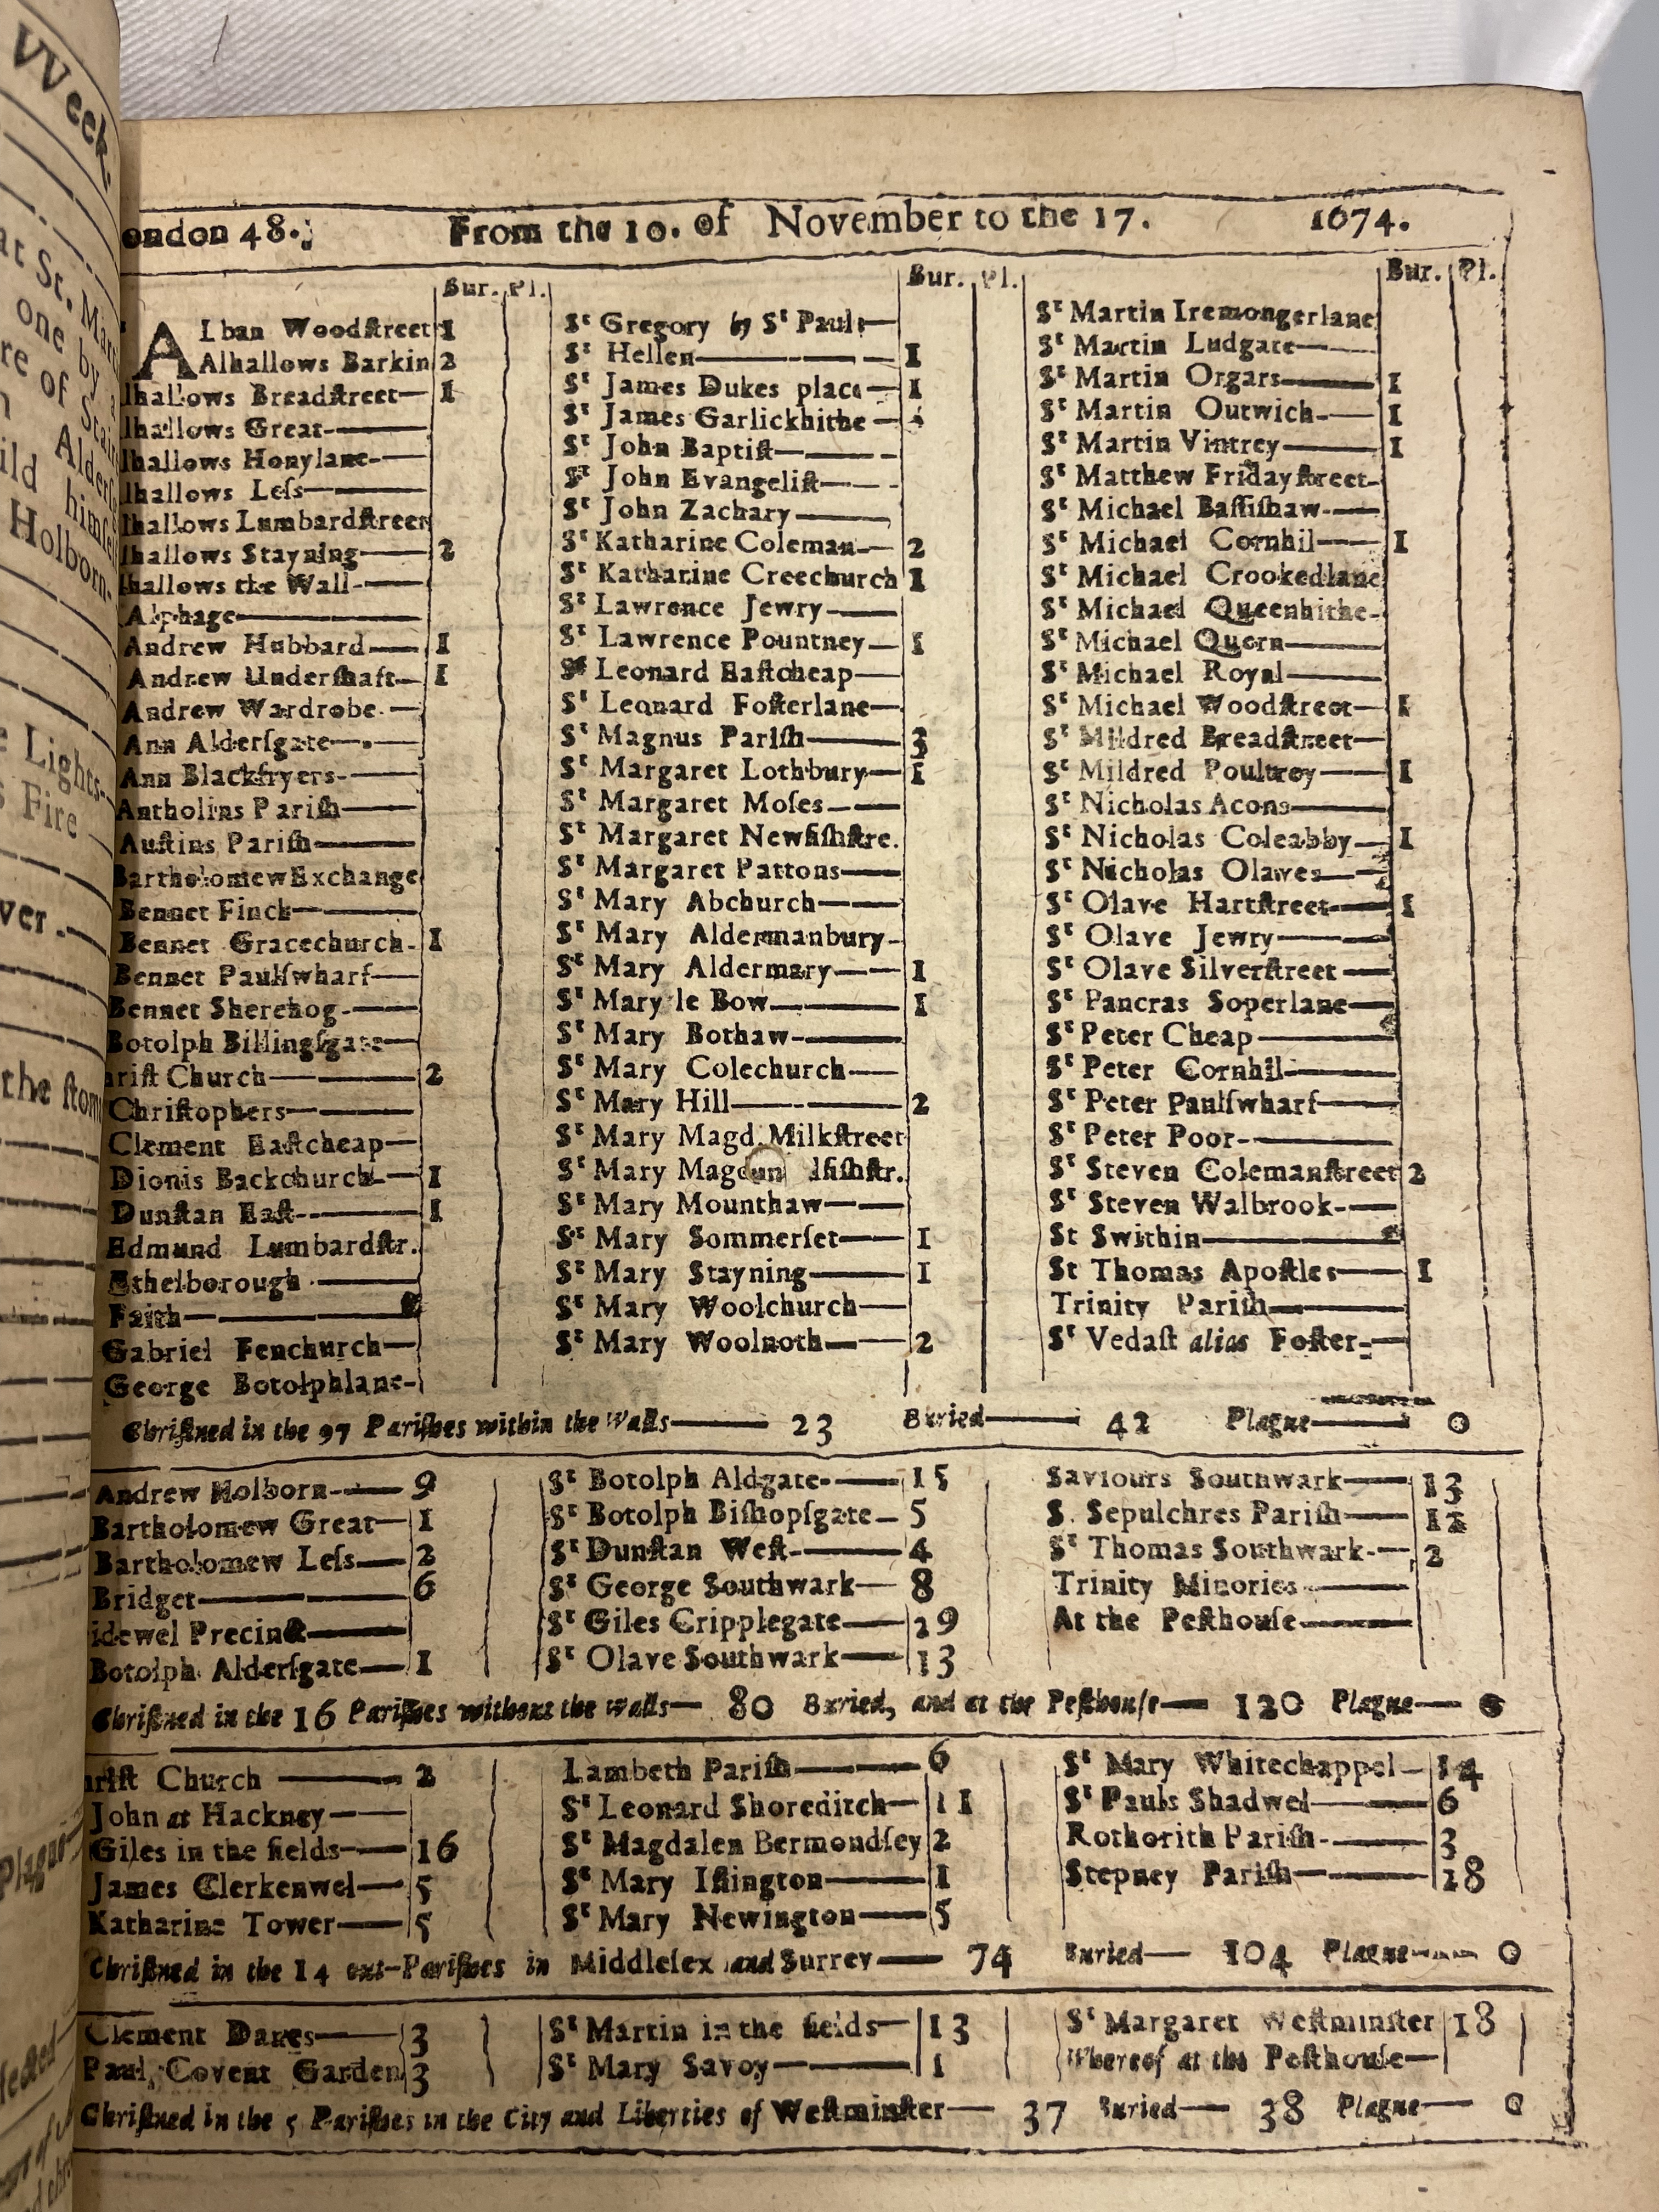 VVeek.
at St. Mart
one by a
re of Stain
Alders
ild himsel
Holborn-
e Lights-
s Fire
ver.
the stom
Plague
ondon 48.; From the 10. of November to the 17. 1674.
Bur. Pl.
ALban Woodſtreet 1
Alhallows Barkin 2
lhallows Breadſtreet— 1
lhallows Great
lhallows Honylane-
lhallows Leſs
lhallows Lumbardſtreet
lhallows Stayning 2
hallows the Wall
Alphage
Andrew Hubbard 1
Andrew Underſhaft 1
Andrew Wardrobe
Ann Alderſgate
Ann Blackfryers
Antholins Pariſh
Auſtins Pariſh
Bartholomew Exchange
Bennet Finck
Bennet Gracechurch 1
Bennet Paulſwharf
Bennet Sherehog
Botolph Billingſgate
hriſt Church 2
Chriſtophers
Clement Eaſtcheap
Dionis Backchurch 1
Dunſtan Eaſt 1
Edmund Lumbardſtr.
Ethelborough
Faith
Gabriel Fenchurch
George Botolphlane
Bur. Pl.
Sᵗ Gregory by Sᵗ Pauls
Sᵗ Hellen 1
Sᵗ James Dukes place 1
Sᵗ James Garlickhithe
Sᵗ John Baptiſt
Sᵗ John Evangeliſt
Sᵗ John Zachary
Sᵗ Katharine Coleman 2
Sᵗ Katharine Creechurch 1
Sᵗ Lawrence Jewry
Sᵗ Lawrence Pountney 1
Sᵗ Leonard Eaſtcheap
Sᵗ Leonard Foſterlane
Sᵗ Magnus Pariſh 3
Sᵗ Margaret Lothbury 1
Sᵗ Margaret Moſes
Sᵗ Margaret Newfiſhſtre.
Sᵗ Margaret Pattons
Sᵗ Mary Abchurch
Sᵗ Mary Aldermanbury
Sᵗ Mary Aldermary 1
Sᵗ Mary le Bow 1
Sᵗ Mary Bothaw
Sᵗ Mary Colechurch
Sᵗ Mary Hill 2
Sᵗ Mary Magd. Milkſtreet
Sᵗ Mary Mag ldfiſhſtr.
Sᵗ Mary Mounthaw
Sᵗ Mary Sommerſet 1
Sᵗ Mary Stayning 1
Sᵗ Mary Woolchurch
Sᵗ Mary Woolnoth 2
Bur. Pl.
Sᵗ Martin Iremongerlane
Sᵗ Martin Ludgate
Sᵗ Martin Orgars 1
Sᵗ Martin Outwich 1
Sᵗ Martin Vintrey 1
Sᵗ Matthew Fridayſtreet
Sᵗ Michael Baſſiſhaw
Sᵗ Michael Cornhil 1
Sᵗ Michael Crookedlane
Sᵗ Michael Queenhithe
Sᵗ Michael Quern
Sᵗ Michael Royal
Sᵗ Michael Woodſtreet 1
Sᵗ Mildred Breadſtreet
Sᵗ Mildred Poultrey 1
Sᵗ Nicholas Acons
Sᵗ Nicholas Coleabby 1
Sᵗ Nicholas Olaves
Sᵗ Olave Hartſtreet 1
Sᵗ Olave Jewry
Sᵗ Olave Silverſtreet
Sᵗ Pancras Soperlane
Sᵗ Peter Cheap
Sᵗ Peter Cornhil
Sᵗ Peter Paulſwharf
Sᵗ Peter Poor
Sᵗ Steven Colemanſtreet 2
Sᵗ Steven Walbrook
St Swithin
St Thomas Apoſtles 1
Trinity Pariſh
Sᵗ Vedaſt alias Foſter
Chriſtned in the 97 Pariſhes within the Walls— 23 Buried— 42 Plague— 0
Andrew Holborn 9
Bartholomew Great 1
Bartholomew Leſs 2
Bridget 6
idewel Precinct
Botolph Alderſgate 1
Sᵗ Botolph Aldgate 15
Sᵗ Botolph Biſhopſgate 5
Sᵗ Dunſtan Weſt 4
Sᵗ George Southwark 8
Sᵗ Giles Cripplegate 29
Sᵗ Olave Southwark 13
Saviours Southwark 13
S. Sepulchres Pariſh 12
Sᵗ Thomas Southwark 2
Trinity Minories
At the Peſthouſe
Chriſtned in the 16 Pariſhes without the Walls— 80 Buried, and at the Peſthouſe— 120 Plague— 0
hriſt Church 2
John at Hackney
Giles in the fields 16
James Clerkenwel 5
Katharine Tower 5
Lambeth Pariſh 6
Sᵗ Leonard Shoreditch 11
Sᵗ Magdalen Bermondſey 2
Sᵗ Mary Iſlington 1
Sᵗ Mary Newington 5
Sᵗ Mary Whitechappel 14
Sᵗ Pauls Shadwel 6
Rothorith Pariſh 3
Stepney Pariſh 28
Chriſtned in the 14 out-Pariſhes in Middleſex and Surrey— 74 Buried— 104 Plague— 0
Clement Danes 3
Paul, Covent Garden 3
Sᵗ Martin in the fields 13
Sᵗ Mary Savoy 1
Sᵗ Margaret Weſtminſter 18
Whereof at the Peſthouſe—
Chriſtned in the 5 Pariſhes in the City and Liberties of Weſtminſter— 37 Buried— 38 Plague— 0